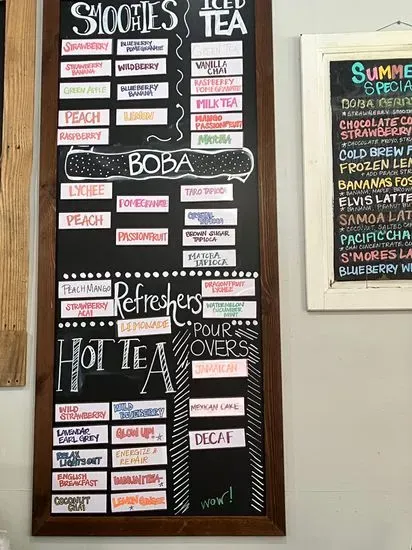 SMOOTHIES
STRAWBERRY
BLUEBERRY
POMEGRANATE
STRAWBERRY
BANANA
WILDBERRY
GREEN APPLE
BLUEBERRY
BANANA
PEACH
LEMON
RASPBERRY
ICED
TEA
GREEN TEA
VANILLA
CHAI
RASPBERRY
POMEGRANATE
MILK TEA
MANGO
PASSIONFRUIT
MATCHA
BOBA
LYCHEE
POMEGRANATE
PEACH
PASSIONFRUIT
TARO TAPIOCA
CRYSTAL
TAPIOCA
BROWN SUGAR
TAPIOCA
MATCHA
TAPIOCA
PEACH MANGO
STRAWBERRY
ACAI
Refreshers
LEMONADE
DRAGONFRUIT
LYCHEE
WATERMELON
CUCUMBER
MINT
HOT TEA
WILD
STRAWBERRY
WILD
BLUEBERRY
LAVENDAR
EARL GREY
GLOW UP!
RELAX
LIGHTS OUT
ENERGIZE &
REPAIR
ENGLISH
BREAKFAST
IMMUNITEA
COCONUT
CHAI
LEMON GINGER
POUR
OVERS
JAMAICAN
MEXICAN CAKE
DECAF
wow!
SUMME
SPECIA
BOBA BERR
CHOCOLATE CO
STRAWBERRY
COLD BREW F
FROZEN LEM
BANANAS FOS
ELVIS LATTE
SAMOA LATT
PACIFIC CHA
S'MORES L
BLUEBERRY W